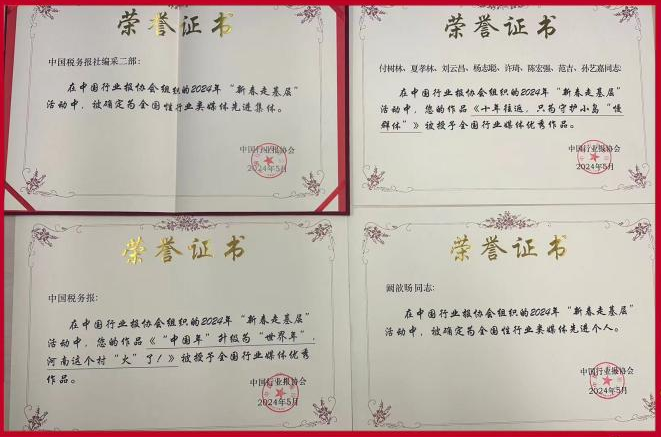 荣誉证书
中国税务报社编采二部：
在中国行业报协会组织的2024年“新春走基层”
活动中，被确定为全国性行业类媒体先进集体。
中国行业报协会
2024年5月
荣誉证书
付树林、夏孝林、刘云昌、杨志聪、许琦、陈宏强、范吉、孙艺嘉同志：
在中国行业报协会组织的2024年“新春走基层”
活动中，您的作品《十年往返，只为守护小岛“慢
群体”》被授予全国行业媒体优秀作品。
中国行业报协会
2024年5月
荣誉证书
中国税务报：
在中国行业报协会组织的2024年“新春走基层”
活动中，您的作品《“中国年”升级为“世界年”，
河南这个村“火”了！》被授予全国行业媒体优秀
作品。
中国行业报协会
2024年5月
荣誉证书
阚歆旸同志：
在中国行业报协会组织的2024年“新春走基层”
活动中，被确定为全国性行业类媒体先进个人。
中国行业报协会
2024年5月